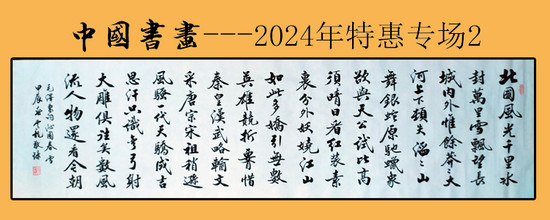 中國書畫---2024年特惠专场2
北國風光千里氷
封萬里雪飄望長
城内外惟餘莽々大
河上下頓失滔々山
舞銀蛇原馳蠟象
欲與天公試比高
須晴日看紅裝素
裹分外妖嬈江山
如此多嬌引無數
英雄競折腰惜
秦皇漢武略輸文
采唐宗宋祖稍遜
風騷一代天驕成吉
思汗只識彎弓射
大雕俱往矣數風
流人物還看今朝
毛澤東詞沁園春雪
甲辰